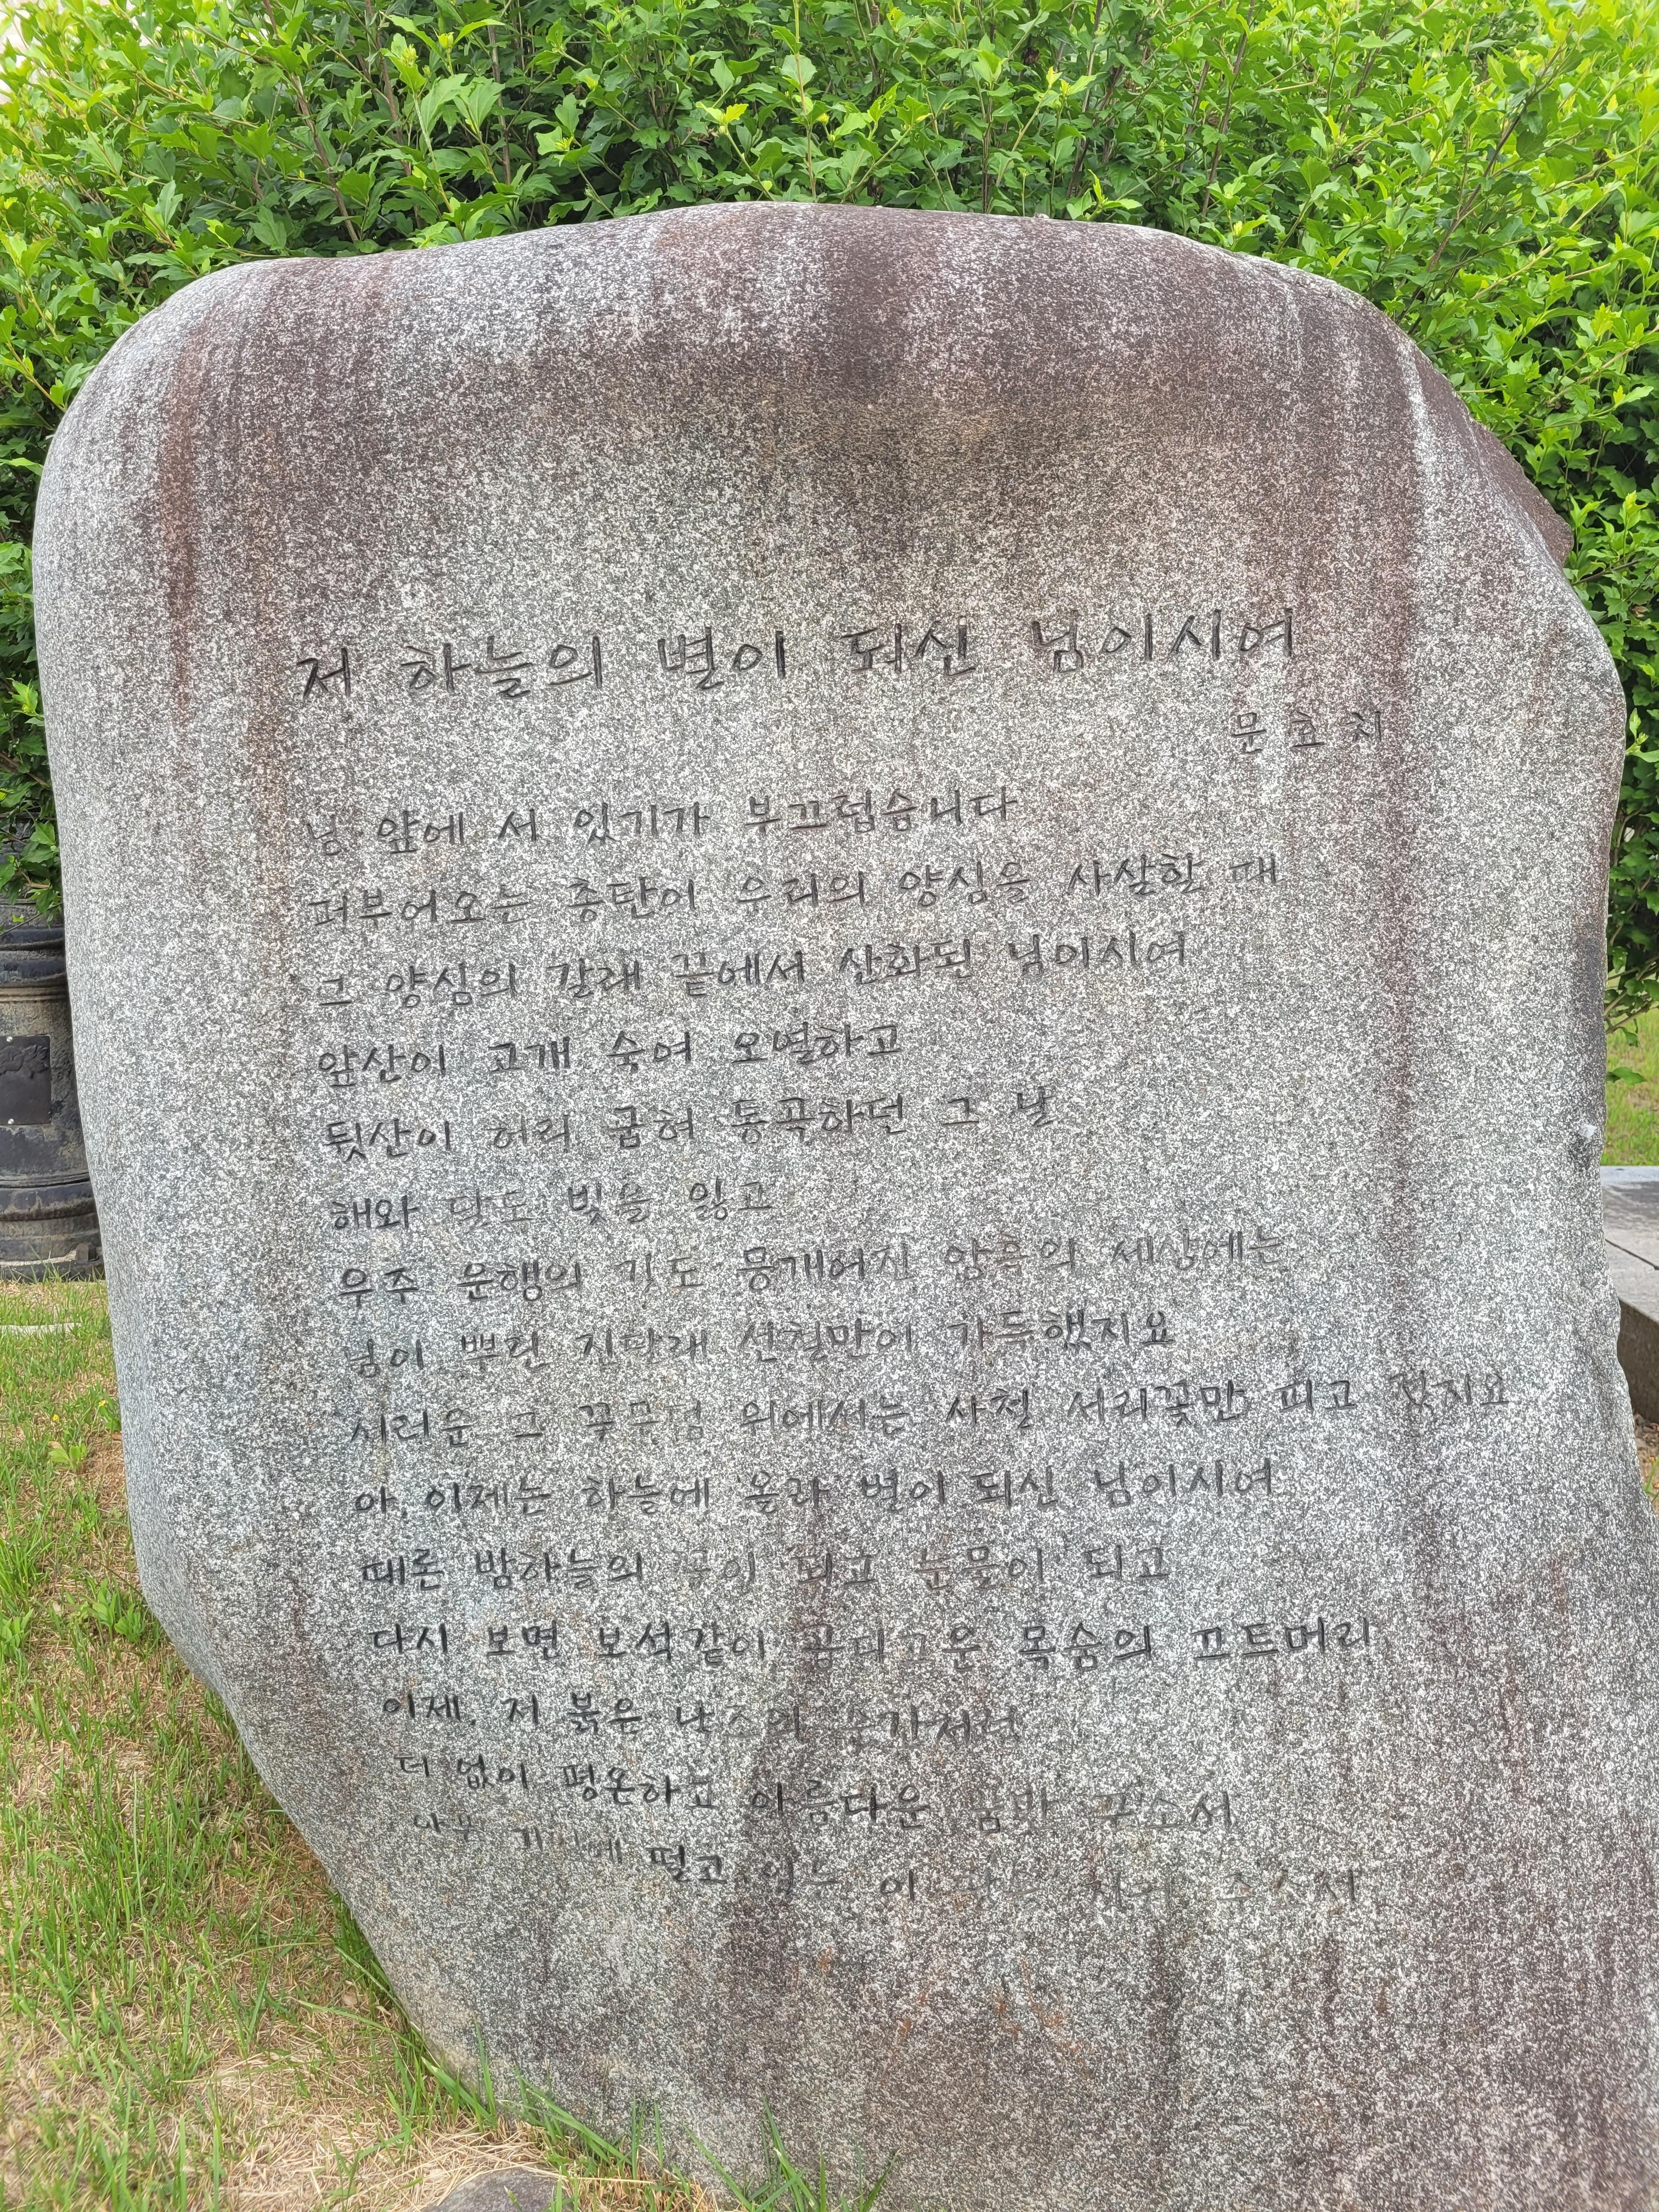 저 하늘의 별이 되신 님이시여
문효치
님 앞에 서 있기가 부끄럽습니다
퍼부어오는 총탄이 우리의 양심을 사살할 때
그 양심의 갈래 끝에서 산화된 님이시여
앞산이 고개 숙여 오열하고
뒷산이 허리 굽혀 통곡하던 그 날
해와 달도 빛을 잃고
우주 운행의 기도 뭉개어진 암흑의 세상에는
님이 뿌린 진달래 선혈만이 가득했지요
시려운 그 무덤 위에서는 사철 서리꽃만 피고 졌지요
아, 이제는 하늘에 올라 별이 되신 님이시여
때론 밤하늘의 되고 눈물이 되고
다시 보면 보석같이 곱디고운 목숨의 끄트머리
이제, 저 붉은 순간처럼
더 없이 평온하고 아름다운 꿈만 꾸소서
떨고 있는 이